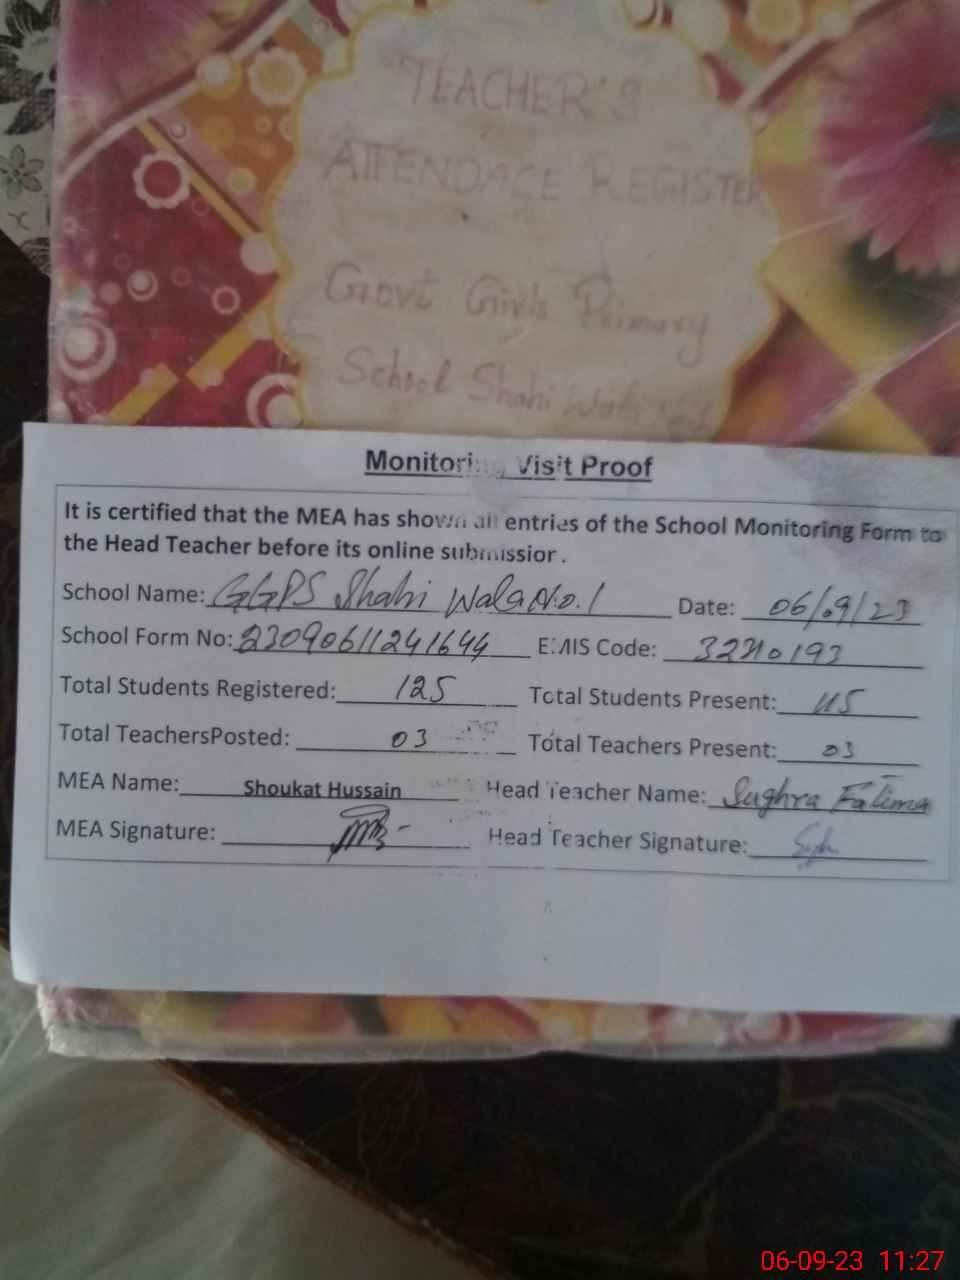 TEACHER'S
ATTENDACE REGISTER
Govt Girls Primary
School Shahi Wala
Monitoring Visit Proof
It is certified that the MEA has shown all entries of the School Monitoring Form to
the Head Teacher before its online submission.
School Name: GGPS Shahi Wala No.1 Date: 06/09/23
School Form No: 23090611241644 EMIS Code:
Total Students Registered: 125 Total Students Present: 115
Total TeachersPosted: 03 Total Teachers Present: 03
MEA Name: Shoukat Hussain Head Teacher Name: Sughra Fatima
MEA Signature: Head Teacher Signature:
06-09-23 11:27